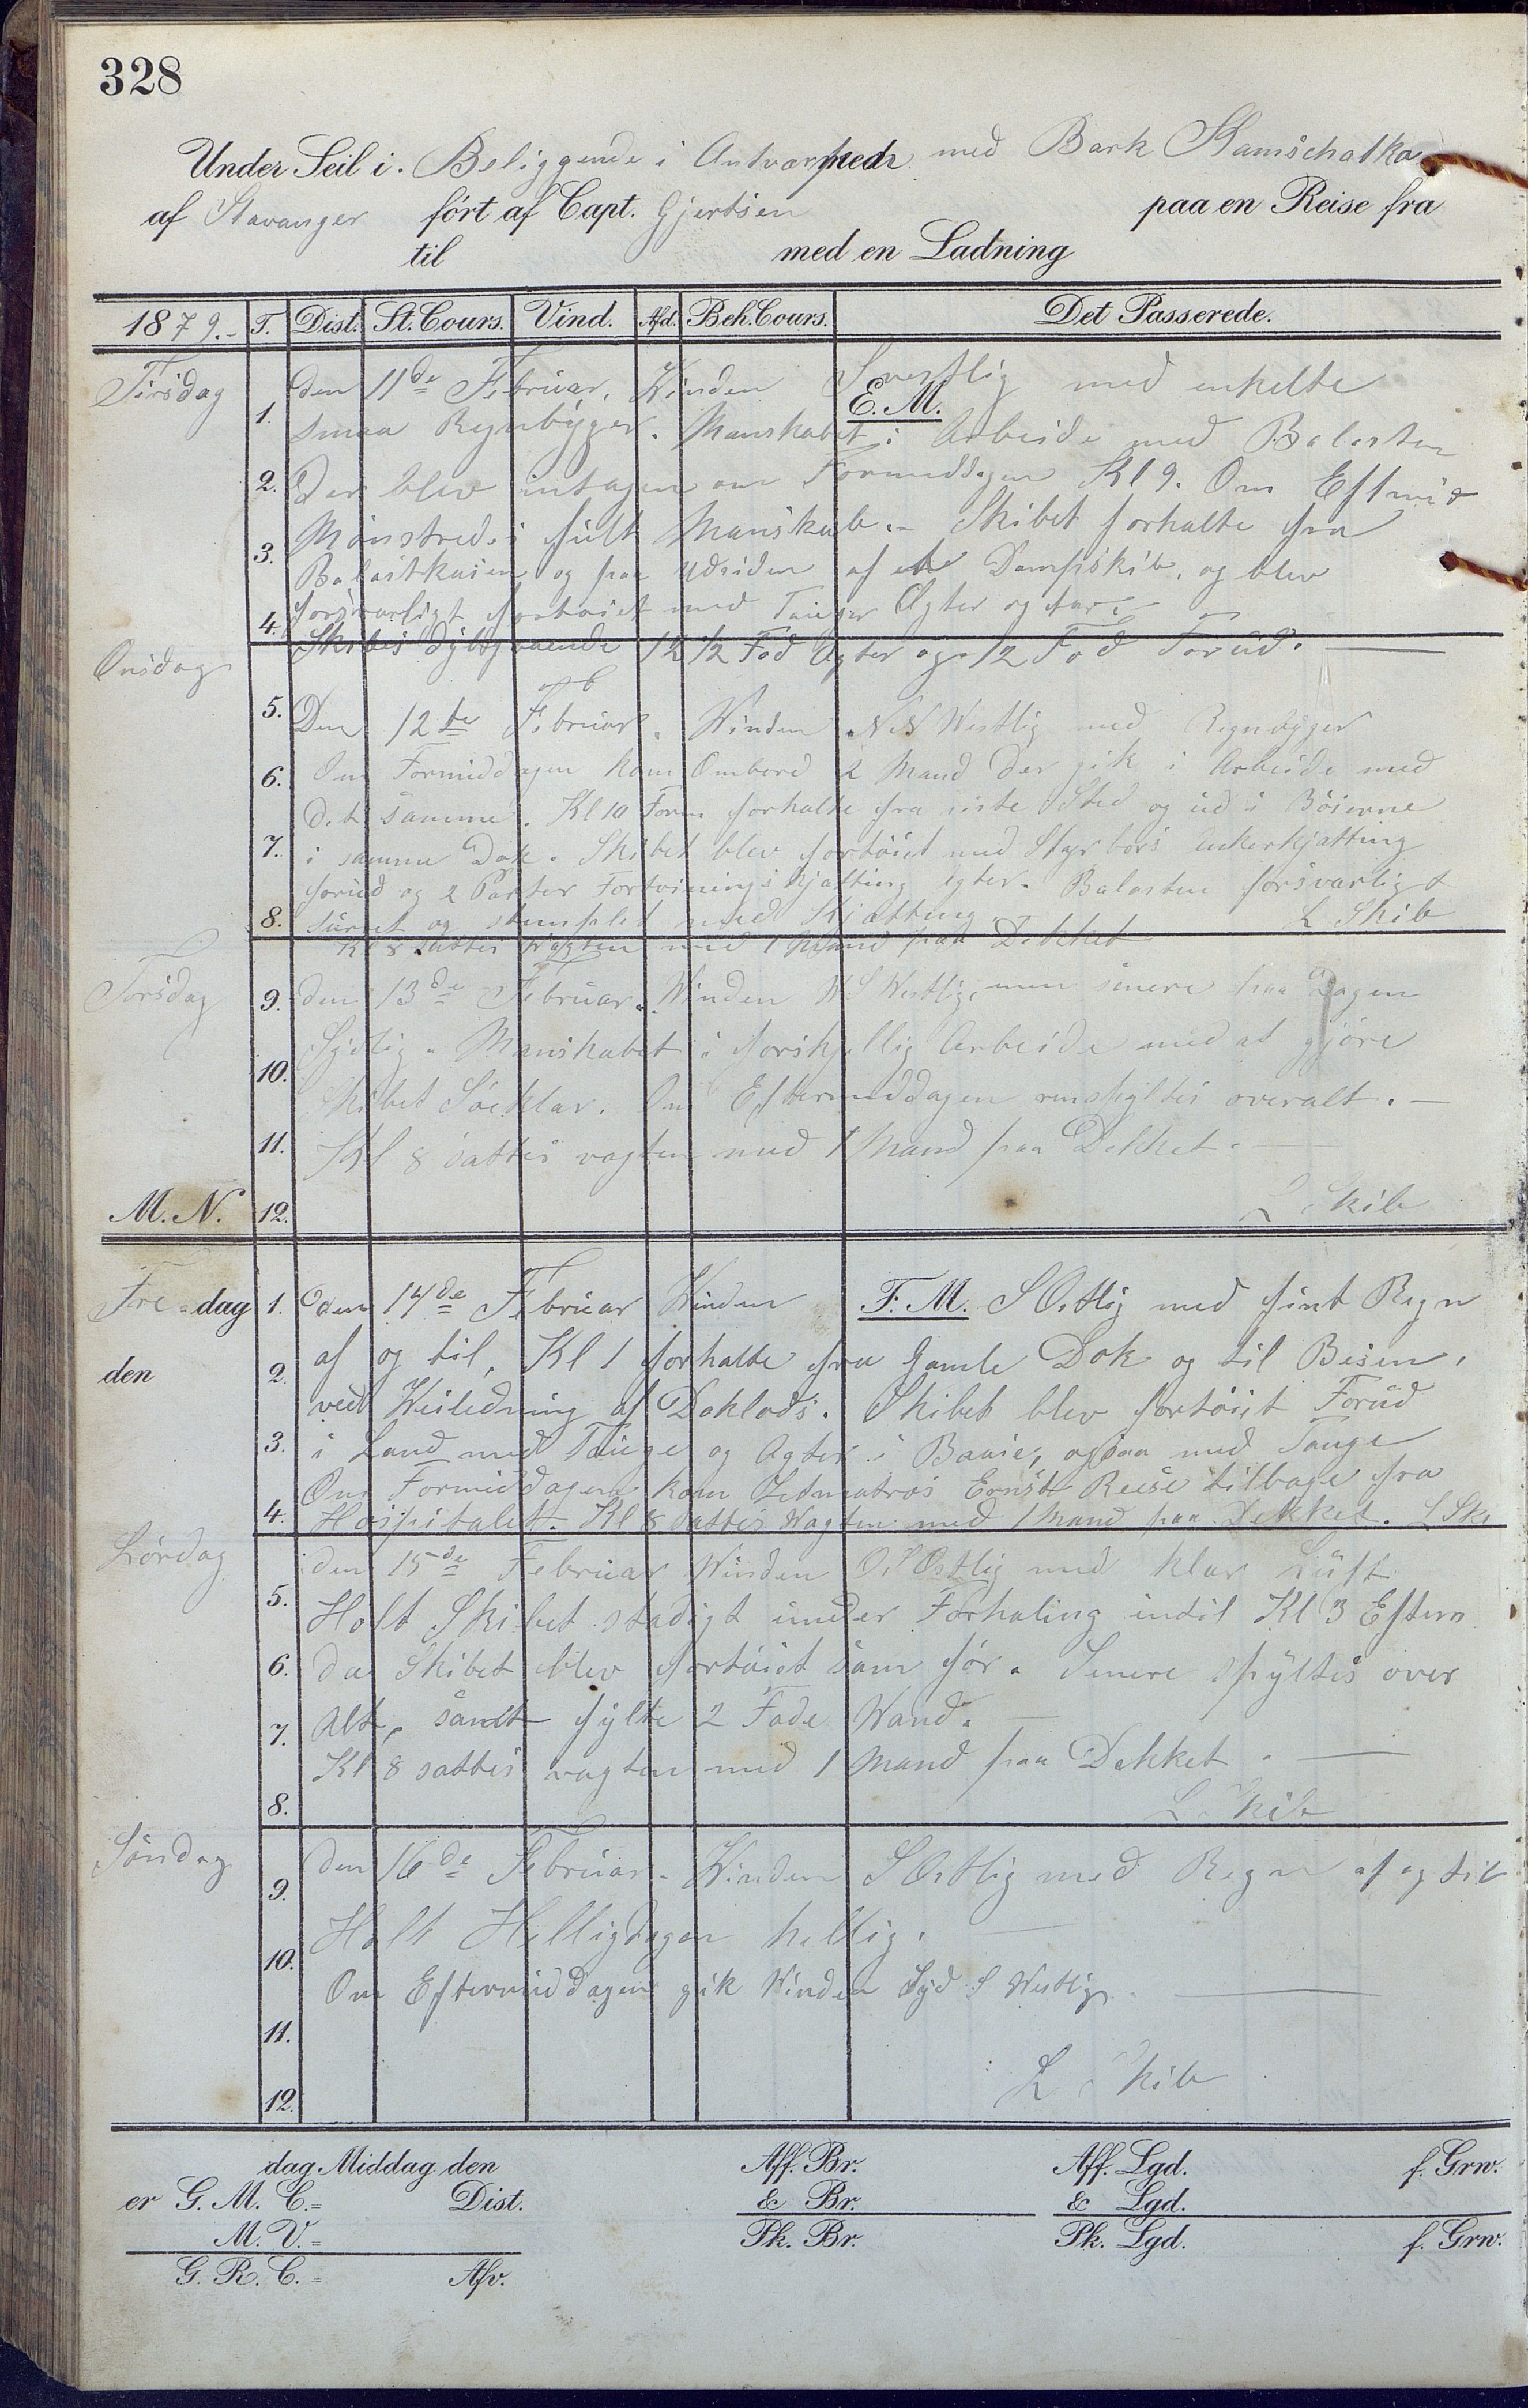 328
Under Seil i. Beliggende i Antwerpen med Bark Kamschatka
af Stavanger ført af Capt. Gjertsen paa en Reise fra
til med en Ladning
1879.- T. Dist. St. Cours. Vind. Afd. Beh. Cours. Det Passerede.
Tirsdag den 11de Februar. Winden vestlig med enkelte
E.M.
1. smaa Regnbyger. Manskabet i Arbeide med Balasten
2. Der blev intagen om Formiddagen Kl 9. Om Eftmid
Mønstredes fult Manskab.- Skibet forhalte fra
3. Balastkaien og paa Udsiden af et Dampskib, og blev
4. forsvarligt fortøiet med Tauger Agter og for.-
Skibes Dybgaaende 12 1/2 Fod Agter og 12 Fod Forud.
Onsdag
5. Den 12te Februar. Winden NN Westlig med Regnbyger
6. Om Formiddagen kom Ombord 2 Mand der gik i Arbeide med
det samme. Kl 10 Form forhalte fra siste Sted og ud i Bøierne
7. i samme Dok. Skibet blev fortøiet med Styrbors Ankerkjætting
forud og 2 Parter Fortøinings kjætting agter. Balasten forsvarligt
8. og stemplet med Kjætting. L. Skib
Kl 8 sattes Wagten med 1 Mand paa Dekket
Torsdag
9. den 13de Februar. Winden W S Westlig, men senere paa Dagen
Sydlig. Manskabet i forskjellig Arbeide med at gjøre
10. Skibet Søeklar. Om Eftermiddagen renspyltes overalt.-
11. Kl 8 sattes vagten med 1 Mand paa Dekket.
M. N. 12. L Skib
Fre-dag 1. den 14de Februar Winden F. M. S Ostlig med fint Regn
den 2. af og til, Kl 1 forhalte fra gamle Dok og til Beisen,
ved Weiledning af Doklods. Skibet blev fortøiet Forud
3. i Land med Tauge og Agter i Baaie, ogsaa med Tauge
Om Formiddagen kom Letmatros Ernst Reese tilbage fra
4. Hospitalet. Kl 8 sattes Wagten med 1 Mand paa Dekket. L Sk
Lørdag den 15de Februar Winden O.S Ostlig med klar Luft
5. Holt Skibet stadigt under Forhaling indtil Kl 3 Efterm
6. da Skibet blev fortøiet som før. Senere spyltes over
7. Alt, samt fylte 2 Fade Wand.
Kl 8 sattes vagten med 1 Mand paa Dekket.
8. L. Skib
Søndag den 16de Februar. Winden S Ostlig med Regn af og til
9. Holt Helligdagen hellig.
10. Om Eftermiddagen gik Winden Syd S Westlig.
11.
L Skib
12.
dag Middag den Aff. Br. Aff. Lgd. f. Grw.
er G. M. C.= Dist. & Br. & Lgd.
M. V.= Pk. Br. Pk. Lgd. f. Grw.
G. R. C.= Afv.